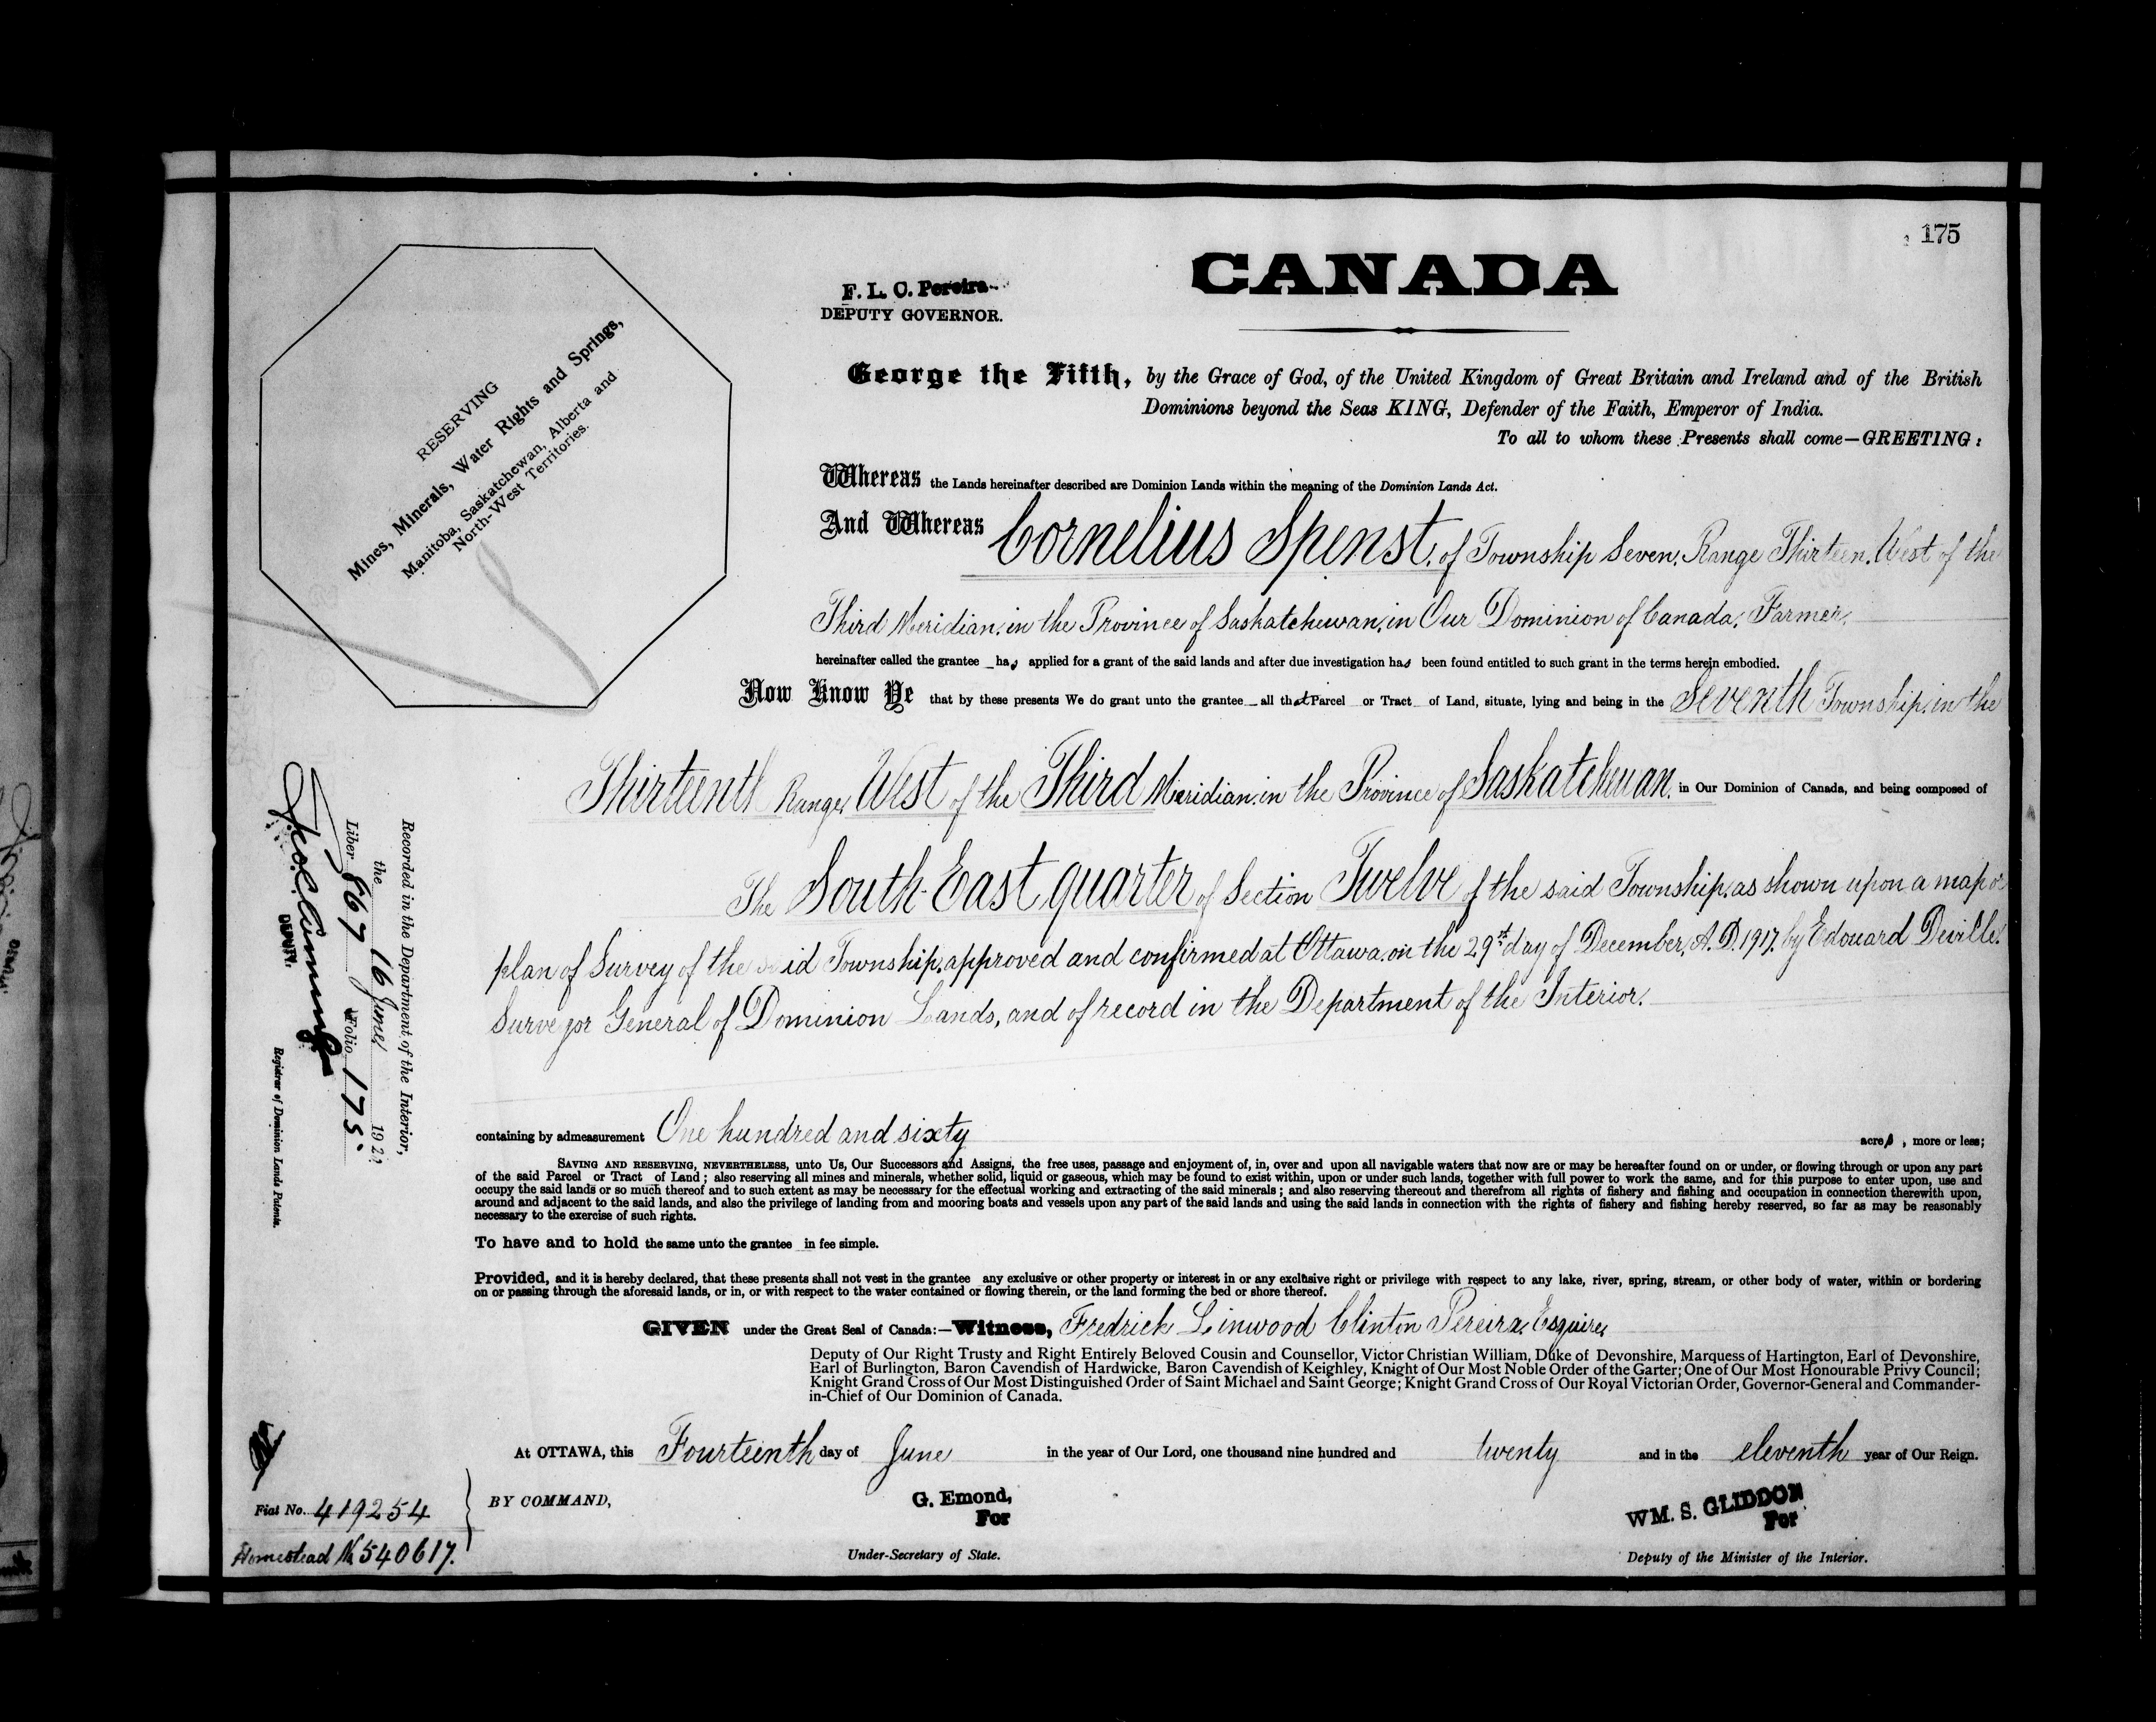 175
CANADA
F. L. C. Pereira
DEPUTY GOVERNOR.
RESERVING
Mines, Minerals, Water Rights and Springs,
Manitoba, Saskatchewan, Alberta and
North-West Territories.
George the Fifth, by the Grace of God, of the United Kingdom of Great Britain and Ireland and of the British
Dominions beyond the Seas KING, Defender of the Faith, Emperor of India.
To all to whom these Presents shall come—GREETING:
Whereas the Lands hereinafter described are Dominion Lands within the meaning of the Dominion Lands Act.
And Whereas Cornelius Spenst, of Township Seven, Range Thirteen, West of the
Third Meridian, in the Province of Saskatchewan, in Our Dominion of Canada, Farmer,
hereinafter called the grantee has applied for a grant of the said lands and after due investigation has been found entitled to such grant in the terms herein embodied.
Now Know Ye that by these presents We do grant unto the grantee all that Parcel or Tract of Land, situate, lying and being in the Seventh Township, in the
Thirteenth Range, West of the Third Meridian, in the Province of Saskatchewan, in Our Dominion of Canada, and being composed of
The South East quarter of Section Twelve of the said Township, as shown upon a map or
plan of Survey of the said Township, approved and confirmed at Ottawa, on the 29th day of December, A.D. 1917, by Edouard Deville,
Surveyor General of Dominion Lands, and of record in the Department of the Interior.
containing by admeasurement One hundred and sixty acres, more or less;
SAVING AND RESERVING, NEVERTHELESS, unto Us, Our Successors and Assigns, the free uses, passage and enjoyment of, in, over and upon all navigable waters that now are or may be hereafter found on or under, or flowing through or upon any part
of the said Parcel or Tract of Land; also reserving all mines and minerals, whether solid, liquid or gaseous, which may be found to exist within, upon or under such lands, together with full power to work the same, and for this purpose to enter upon, use and
occupy the said lands or so much thereof and to such extent as may be necessary for the effectual working and extracting of the said minerals; and also reserving thereout and therefrom all rights of fishery and fishing and occupation in connection therewith upon,
around and adjacent to the said lands, and also the privilege of landing from and mooring boats and vessels upon any part of the said lands and using the said lands in connection with the rights of fishery and fishing hereby reserved, so far as may be reasonably
necessary to the exercise of such rights.
To have and to hold the same unto the grantee in fee simple.
Provided, and it is hereby declared, that these presents shall not vest in the grantee any exclusive or other property or interest in or any exclusive right or privilege with respect to any lake, river, spring, stream, or other body of water, within or bordering
on or passing through the aforesaid lands, or in, or with respect to the water contained or flowing therein, or the land forming the bed or shore thereof.
GIVEN under the Great Seal of Canada:—Witness, Fredrick Linwood Clinton Pereira, Esquire,
Deputy of Our Right Trusty and Right Entirely Beloved Cousin and Counsellor, Victor Christian William, Duke of Devonshire, Marquess of Hartington, Earl of Devonshire,
Earl of Burlington, Baron Cavendish of Hardwicke, Baron Cavendish of Keighley, Knight of Our Most Noble Order of the Garter; One of Our Most Honourable Privy Council;
Knight Grand Cross of Our Most Distinguished Order of Saint Michael and Saint George; Knight Grand Cross of Our Royal Victorian Order, Governor-General and Commander-
in-Chief of Our Dominion of Canada.
At OTTAWA, this Fourteenth day of June in the year of Our Lord, one thousand nine hundred and twenty and in the eleventh year of Our Reign.
BY COMMAND,
G. Emond,
For
Under-Secretary of State.
WM. S. GLIDDON
For
Deputy of the Minister of the Interior.
Recorded in the Department of the Interior,
the 16 June 192
Liber 867 Folio 175.
DEPUTY.
Registrar of Dominion Lands Patents.
Fiat No. 419254
Homestead No 540617.